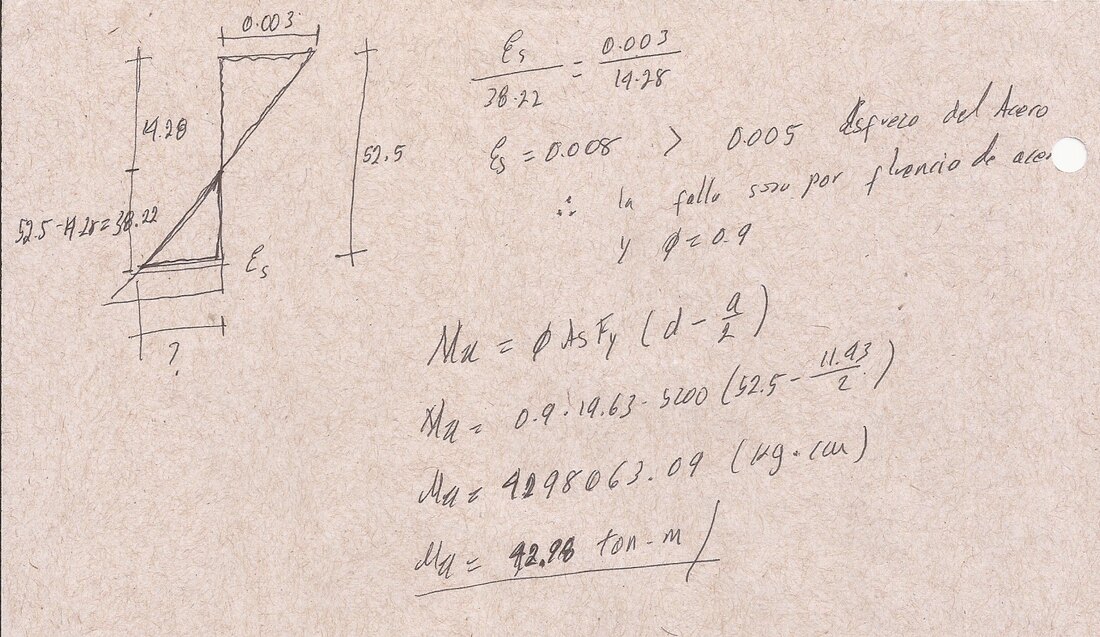 0.003
14.28
52.5
52.5-14.28=38.22
Es
?
Es/38.22 = 0.003/14.28
Es = 0.008 > 0.005 Esfuerzo del Acero
∴ la falla sera por fluencia de acero
y φ=0.9
Mu = φ As Fy (d - a/2)
Mu = 0.9·19.63·5200 (52.5 - 11.93/2)
Mu = 4298063.09 (kg·cm)
Mu = 42.98 ton-m